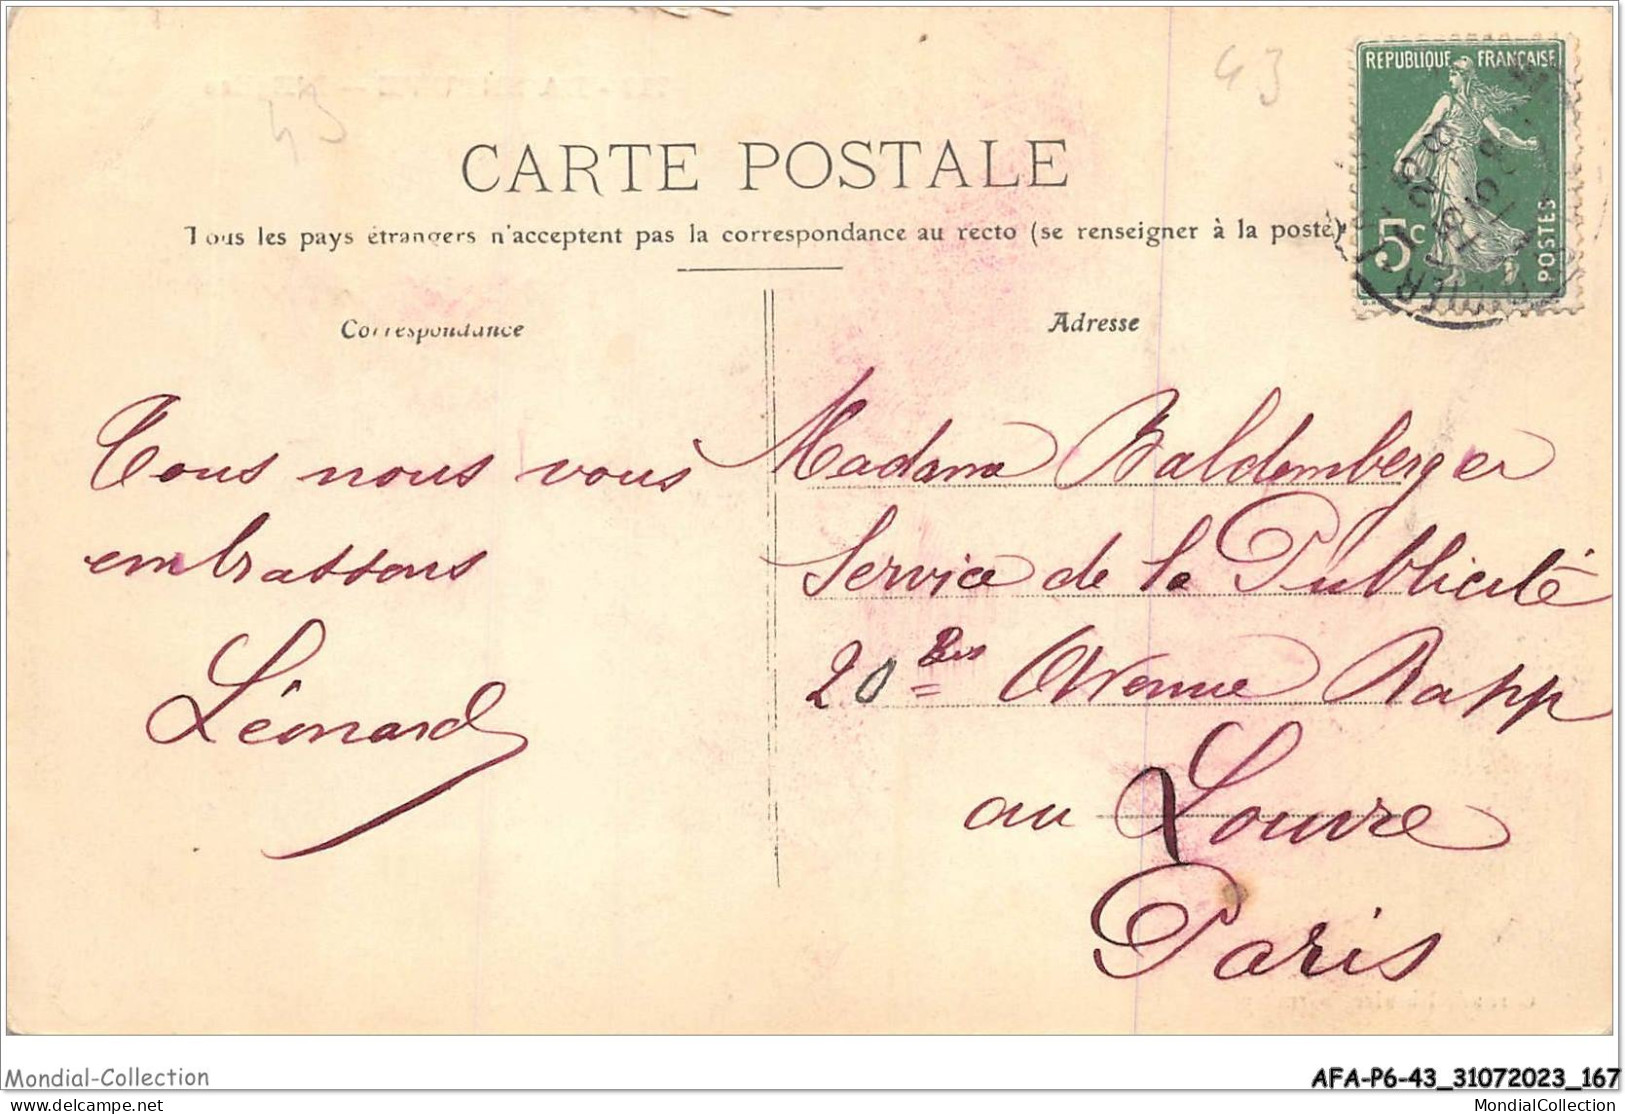 43
43
REPUBLIQUE FRANÇAISE
5c
POSTES
CARTE POSTALE
Tous les pays étrangers n'acceptent pas la correspondance au recto (se renseigner à la poste)
Correspondance
Adresse
Tous nous vous
embrassons
Léonard
Madame Baldemberger
Service de la Publicité
20 Bis Avenue Rapp
au Louvre
Paris
Mondial-Collection
AFA-P6-43_31072023_167
delcampe.net
MondialCollection